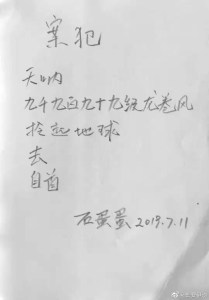 案犯
天呐
九千九百九十九级龙卷风
拎起地球
去
自首
石蛋蛋 2019.7.11